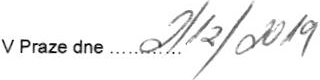 V Praze dne ............ 2/12/2019